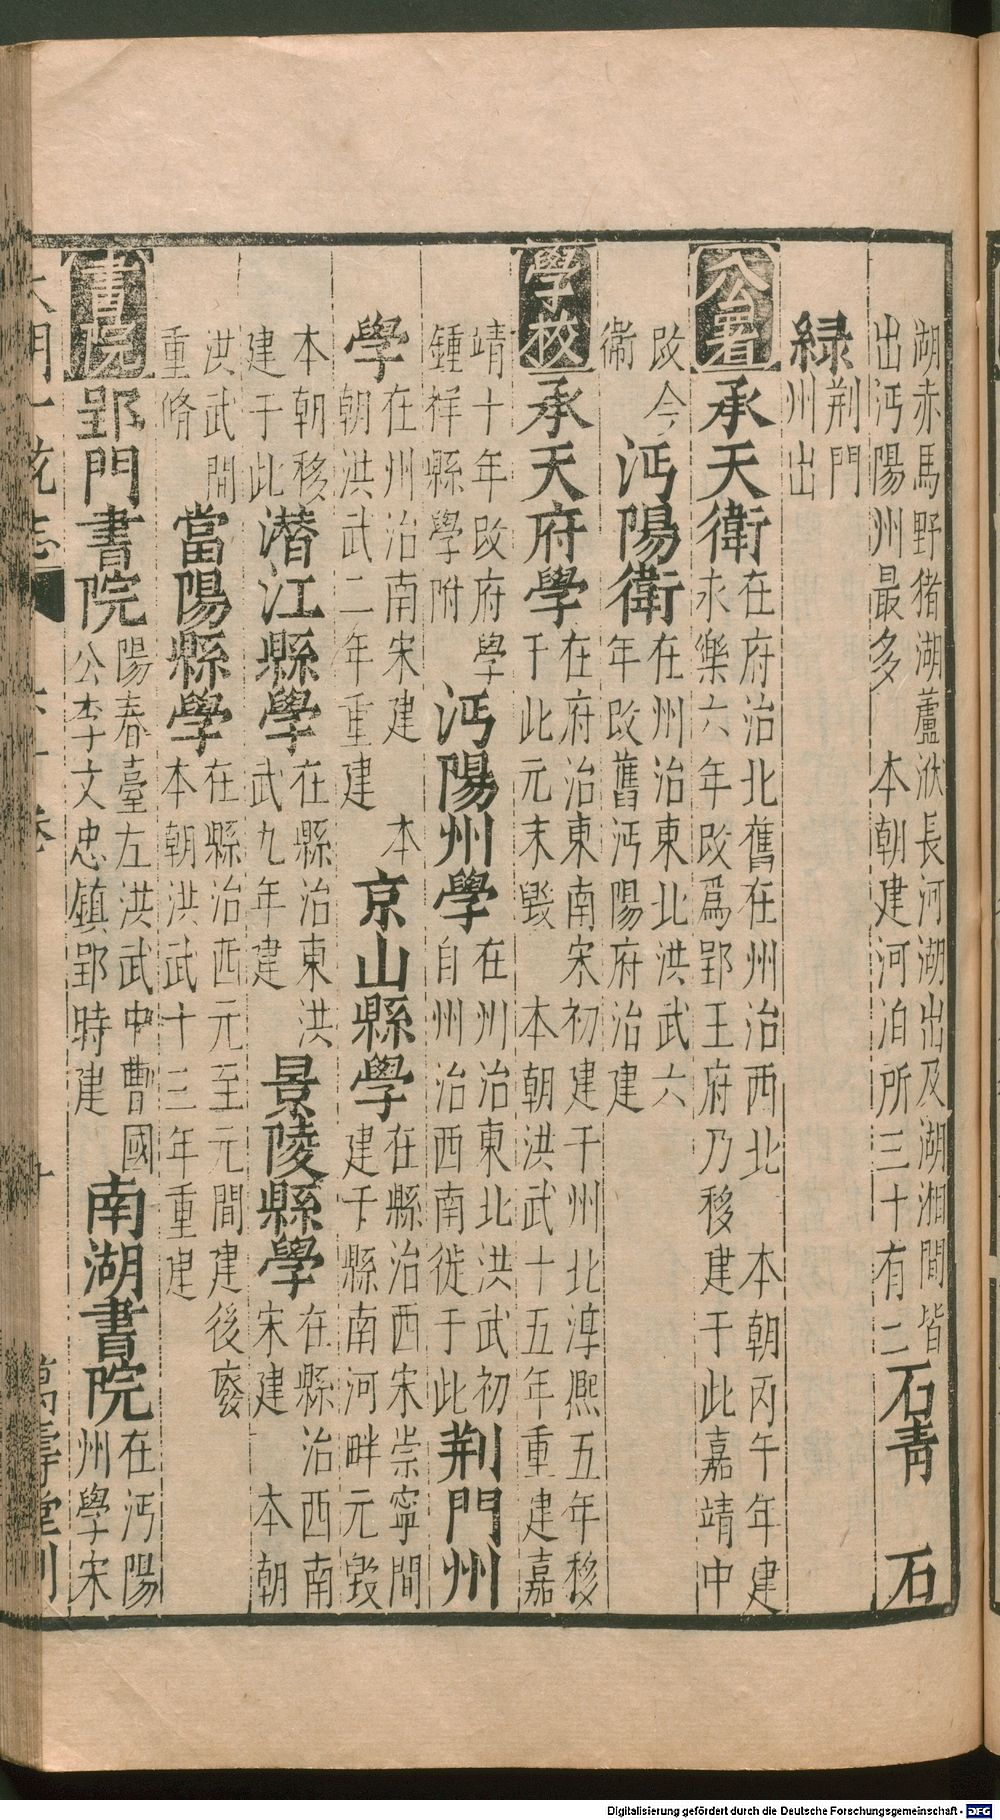 湖赤馬野猪湖蘆洑長河湖出及湖湘間皆
出沔陽州最多 本朝建河泊所三十有二 石青 石
綠 荆門
州出
公署 承天衛 在府治北舊在州治西北 本朝丙午年建
永樂六年改爲郢王府乃移建于此嘉靖中
改今
衛 沔陽衛 在州治東北洪武六
年改舊沔陽府治建
學校 承天府學 在府治東南宋初建于州北淳熙五年移
于此元末毀 本朝洪武十五年重建嘉
靖十年改府學
鍾祥縣學附 沔陽州學 在州治東北洪武初
自州治西南徙于此 荆門州
學 在州治南宋建 本
朝洪武二年重建 京山縣學 在縣治西宋崇寧間
建于縣南河畔元毀
本朝移
建于此 潛江縣學 在縣治東洪
武九年建 景陵縣學 在縣治西南
宋建 本朝
洪武間
重脩 當陽縣學 在縣治西元至元間建後廢
本朝洪武十三年重建
書院 郢門書院 陽春臺左洪武中曹國
公李文忠鎮郢時建 南湖書院 在沔陽
州學宋
大明一統志 卷 十 萬壽堂刊
Digitalisierung gefördert durch die Deutsche Forschungsgemeinschaft - DFG